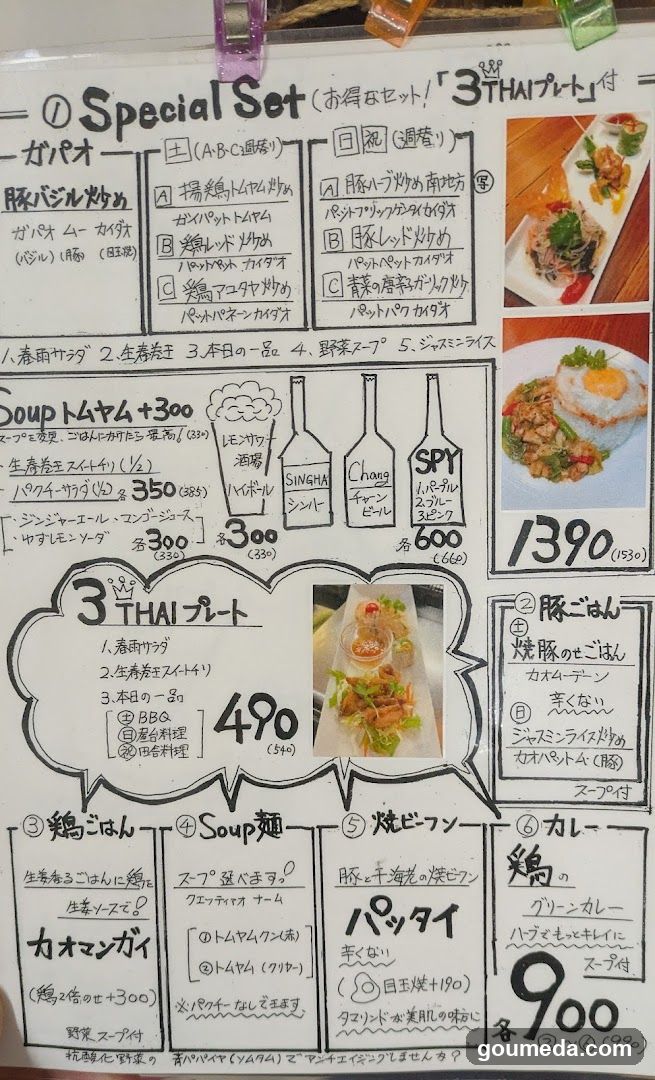 ① Special Set (お得なセット!「3THAIプレート」付
ガパオ
豚バジル炒め
ガパオ ムー カイダオ
(バジル)(豚)(目玉焼)
土 (A・B・C 3週替り)
A 揚鶏トムヤム炒め
ガイパットトムヤム
B 鶏レッド炒め
パットペット カイダオ
C 鶏アユタヤ炒め
パットパネーンカイダオ
日 祝 (3週替り)
A 豚ハーブ炒め南地方 写
パットプリックゲンタイカイダオ
B 豚レッド炒め
パットペットカイダオ
C 青菜の唐辛ガーリック炒
パットパク カイダオ
1、春雨サラダ 2、生春巻 3、本日の一品 4、野菜スープ 5、ジャスミンライス
1390(1530)
Soup トムヤム+300
スープを変更、ごはんにかけたら最高! (330)
・生春巻スイートチリ(1/2)
・パクチーサラダ(1/2) 各350(385)
・ジンジャーエール ・マンゴージュース
・ゆずレモンソーダ 各300
(330)
レモンサワー
酒場
ハイボール
各300
(330)
SINGHA
シンハー
Chang
チャーン
ビール
SPY
1.パープル
2.ブルー
3.ピンク
各600
(660)
3 THAI プレート
1、春雨サラダ
2、生春巻スイートチリ
3、本日の一品
土 BBQ
日 屋台料理
祝 田舎料理
490
(540)
② 豚ごはん
土
焼豚のせごはん
カオムーデーン
辛くない
日
ジャスミンライス炒め
カオパットムー(豚)
スープ付
③ 鶏ごはん
生姜香るごはんに鶏を
生姜ソースで!
カオマンガイ
(鶏2倍のせ+300)
野菜スープ付
④ Soup麺
スープ選べますっ!
クエッティャオ ナーム
①トムヤムクン(赤)
②トムヤム(クリヤー)
※パクチーなしで出来ます。
⑤ 焼ビーフン
豚と干海老の焼ビーフン
パッタイ
辛くない
(目玉焼+190)
タマリンドが美肌の味方に
⑥ カレー
鶏の
グリーンカレー
ハーブでもっとキレイに
スープ付
各900
(990)
抗酸化野菜の 青パパイヤ(ソムタム)でアンチエイジングしませんか?
goumeda.com